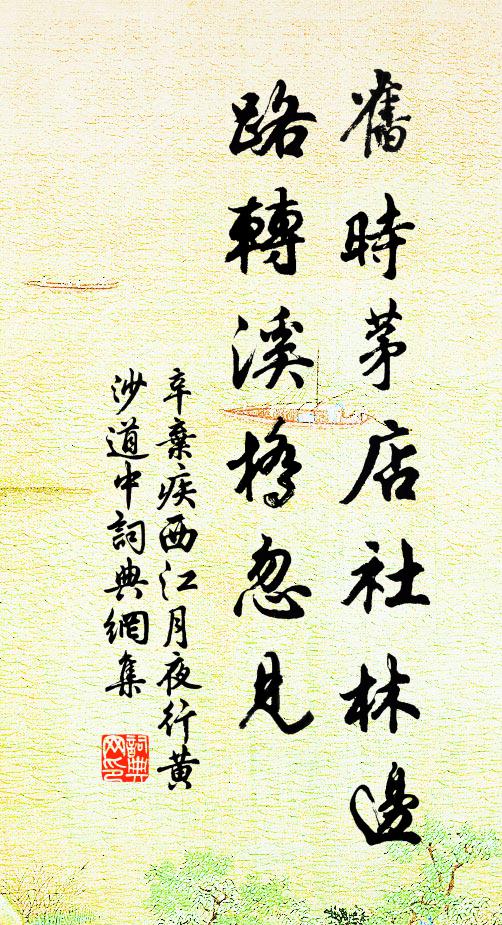 舊時茅店社林邊
路轉溪橋忽見
辛棄疾西江月夜行黃
沙道中詞典網集
詞典
网印